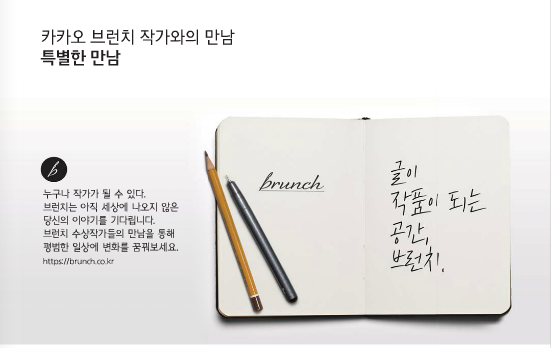 카카오 브런치 작가와의 만남
특별한 만남
b
누구나 작가가 될 수 있다.
브런치는 아직 세상에 나오지 않은
당신의 이야기를 기다립니다.
브런치 수상작가들의 만남을 통해
평범한 일상에 변화를 꿈꿔보세요.
https://brunch.co.kr
brunch
글이
작품이 되는
공간,
브런치.